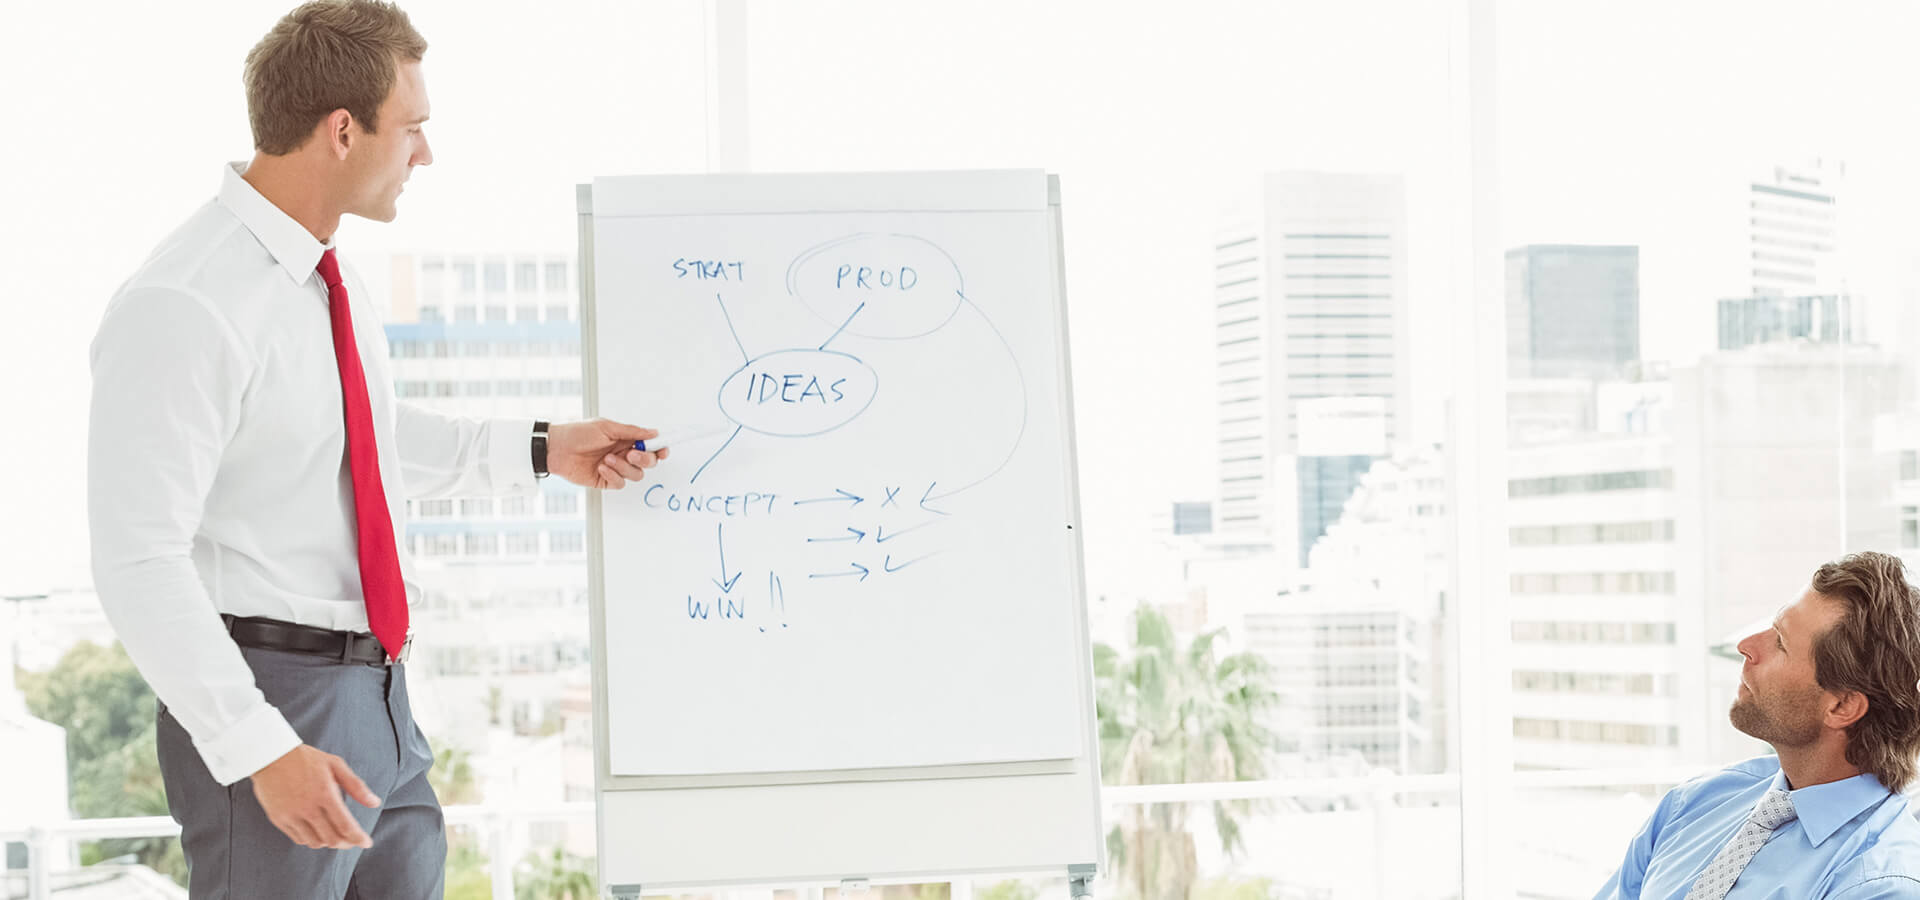 STRAT PROD
IDEAS
CONCEPT → X
→ ✓
→ ✓
WIN !!